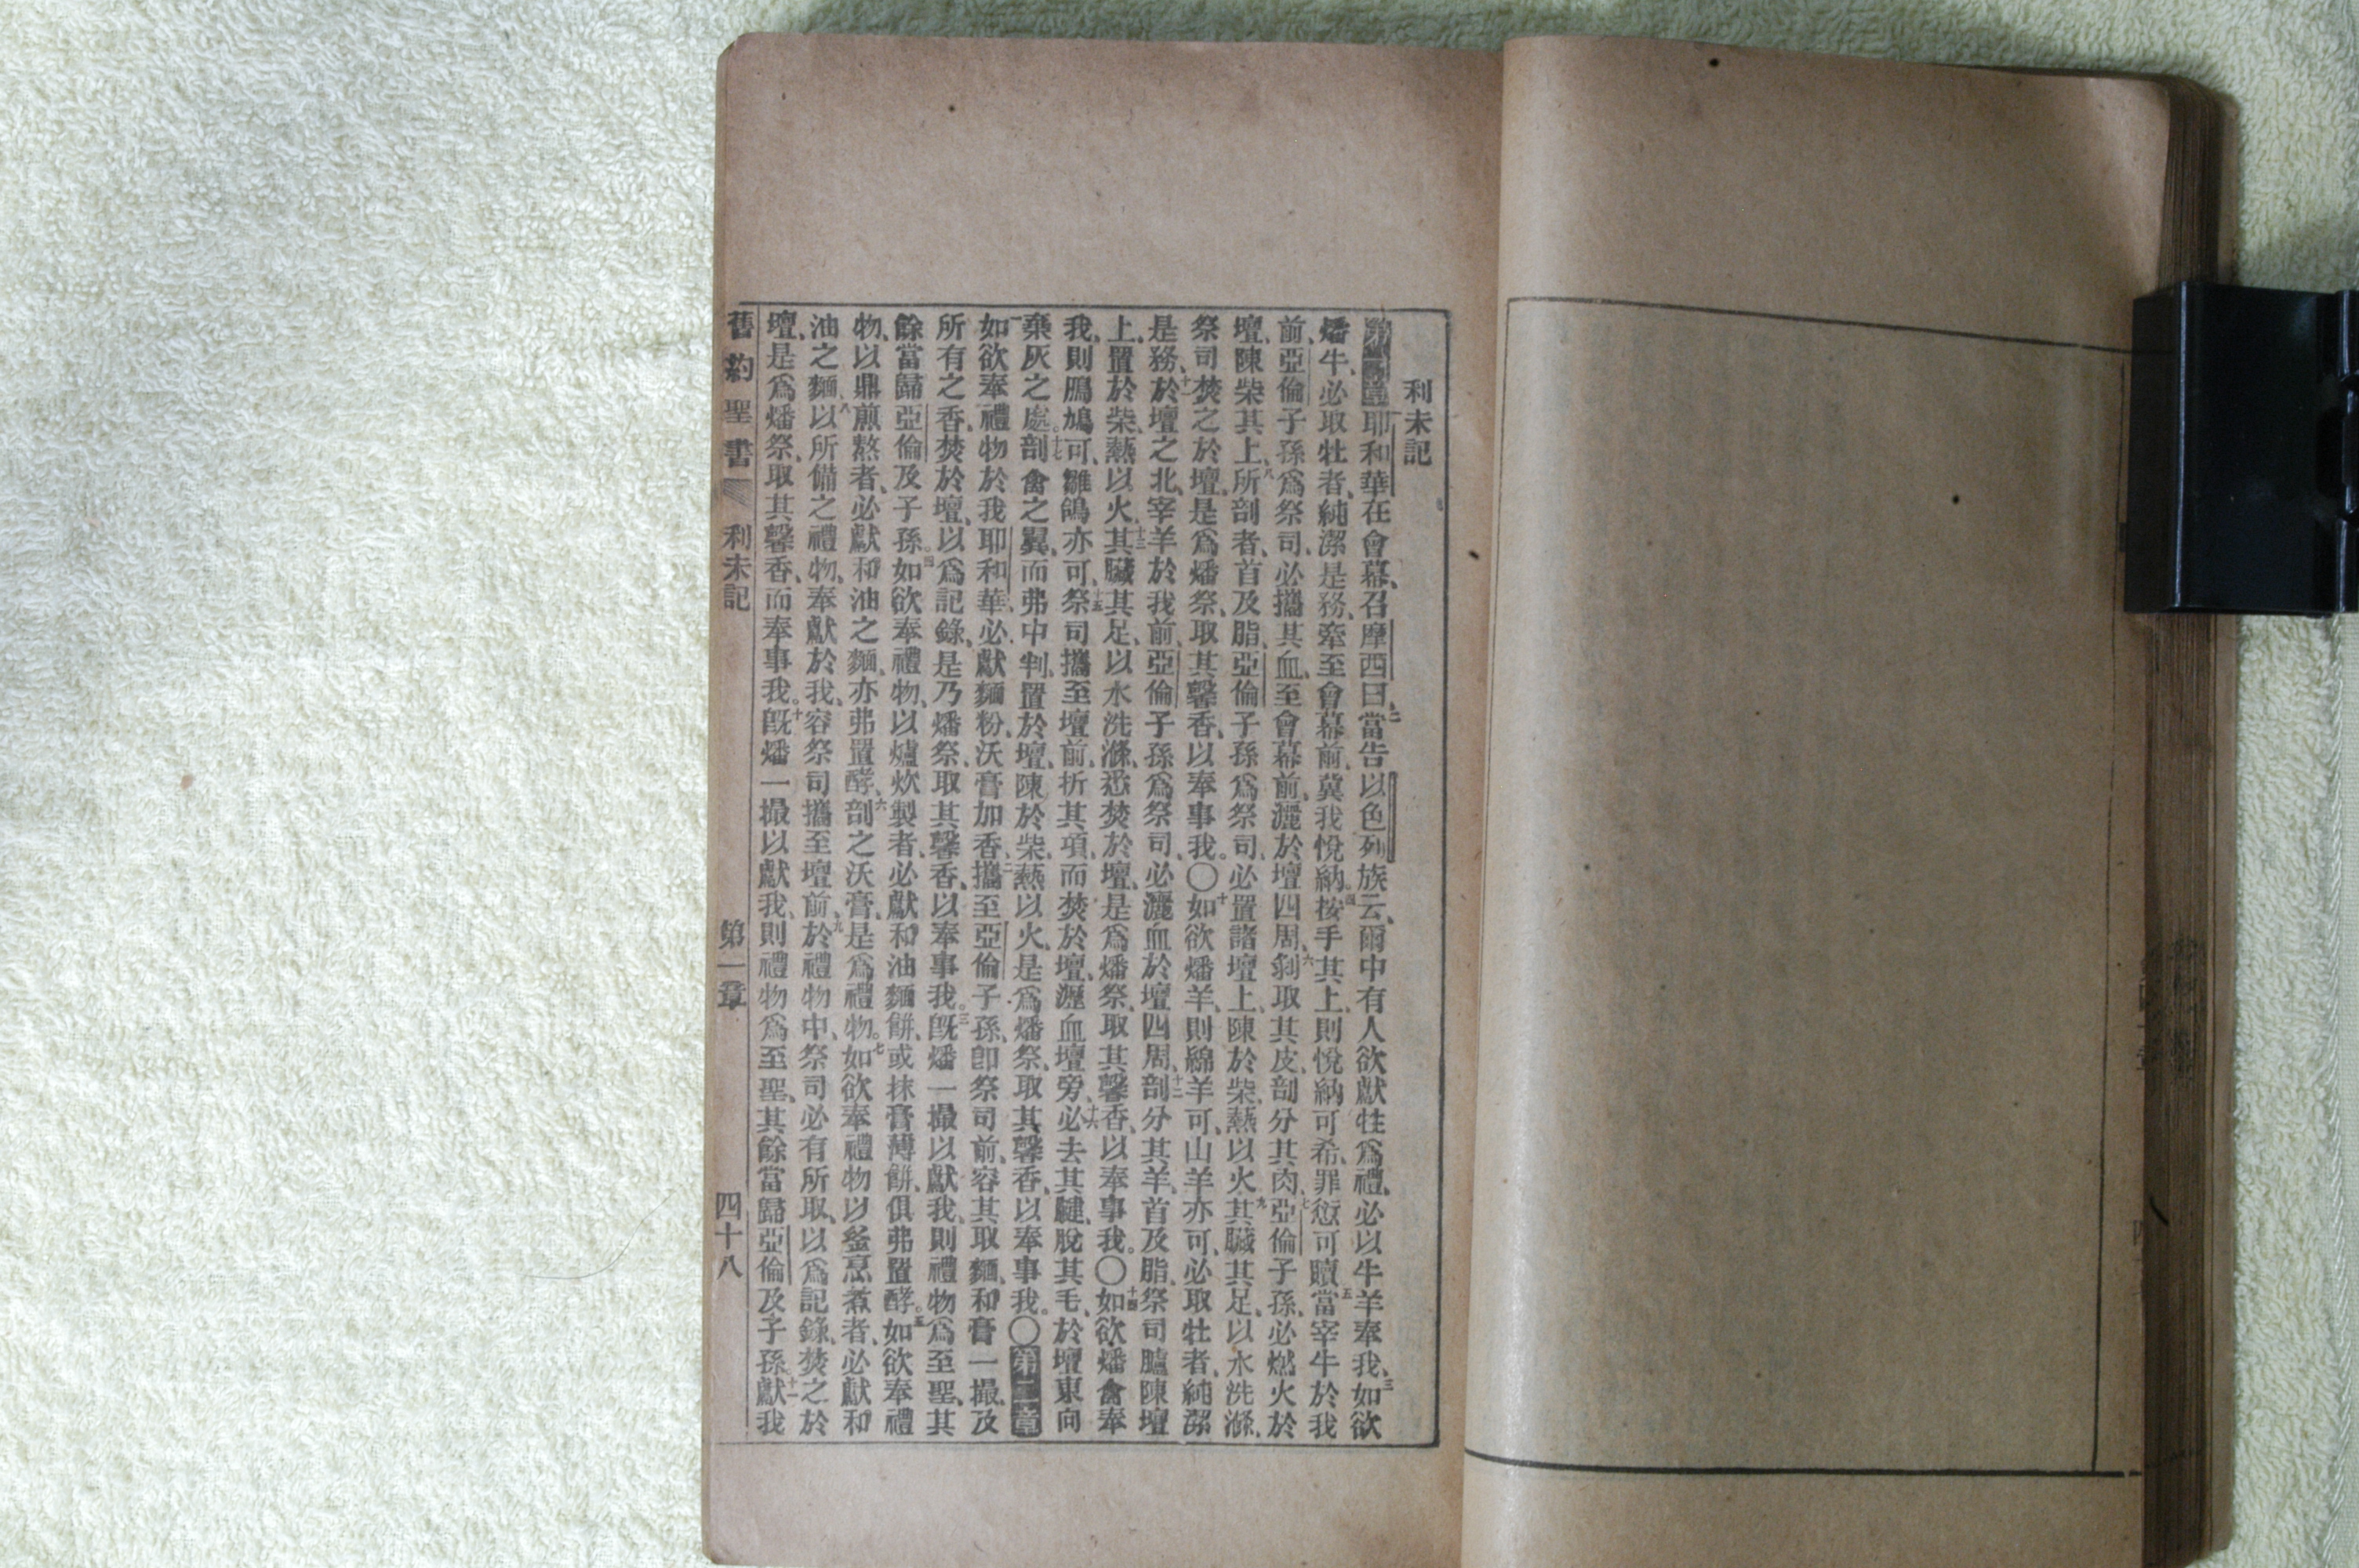 利未記
第一章耶和華在會幕、召摩西曰、二當告以色列族云、爾中有人欲獻牲爲禮、必以牛羊奉我、三如欲
燔牛、必取牡者、純潔是務、牽至會幕前、冀我悅納。四按手其上、則悅納可希、罪愆可贖、五當宰牛於我
前、亞倫子孫爲祭司、必攜其血、至會幕前、灑於壇四周、六剝取其皮、剖分其肉、七亞倫子孫、必燃火於
壇、陳柴其上、八所剖者、首及脂、亞倫子孫爲祭司、必置諸壇上、陳於柴、爇以火、九其臟其足、以水洗滌、
祭司焚之於壇、是爲燔祭、取其馨香、以奉事我。〇十如欲燔羊、則綿羊可、山羊亦可、必取牡者、純潔
是務、十一於壇之北、宰羊於我前、亞倫子孫爲祭司、必灑血於壇四周、十二剖分其羊、首及脂、祭司臚陳壇
上、置於柴、爇以火、十三其臟其足、以水洗滌、悉焚於壇、是爲燔祭、取其馨香、以奉事我。〇十四如欲燔禽奉
我、則鳲鳩可、雛鴿亦可、十五祭司攜至壇前、折其項、而焚於壇、瀝血壇旁、十六必去其膆、脫其毛、於壇東向
棄灰之處。十七剖禽之翼、而弗中判、置於壇、陳於柴、爇以火、是爲燔祭、取其馨香、以奉事我。〇第二章
一如欲奉禮物於我耶和華、必獻麵粉、沃膏加香、二攜至亞倫子孫、卽祭司前、容其取麵和膏一撮、及
所有之香、焚於壇、以爲記錄、是乃燔祭、取其馨香、以奉事我。三旣燔一撮以獻我、則禮物爲至聖、其
餘當歸亞倫及子孫。四如欲奉禮物、以爐炊製者、必獻和油麵餅、或抹膏薄餅、俱弗置酵。五如欲奉禮
物、以鼎煎熬者、必獻和油之麵、亦弗置酵、六剖之沃膏、是爲禮物。七如欲奉禮物、以釜烹煮者、必獻和
油之麵、八以所備之禮物、奉獻於我、容祭司攜至壇前、九於禮物中、祭司必有所取、以爲記錄、焚之於
壇、是爲燔祭、取其馨香、而奉事我。十旣燔一撮以獻我、則禮物爲至聖、其餘當歸亞倫及子孫、十一獻我
舊約聖書 利未記 第一章 四十八